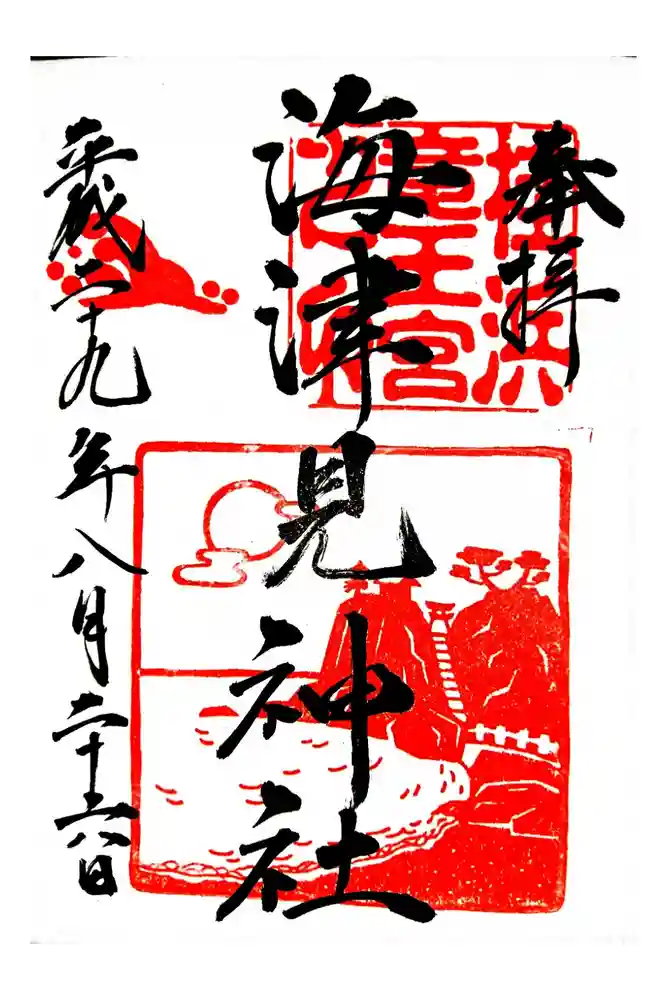 奉拝
桂浜
竜王宮
海津見神社
平成二十九年八月二十六日